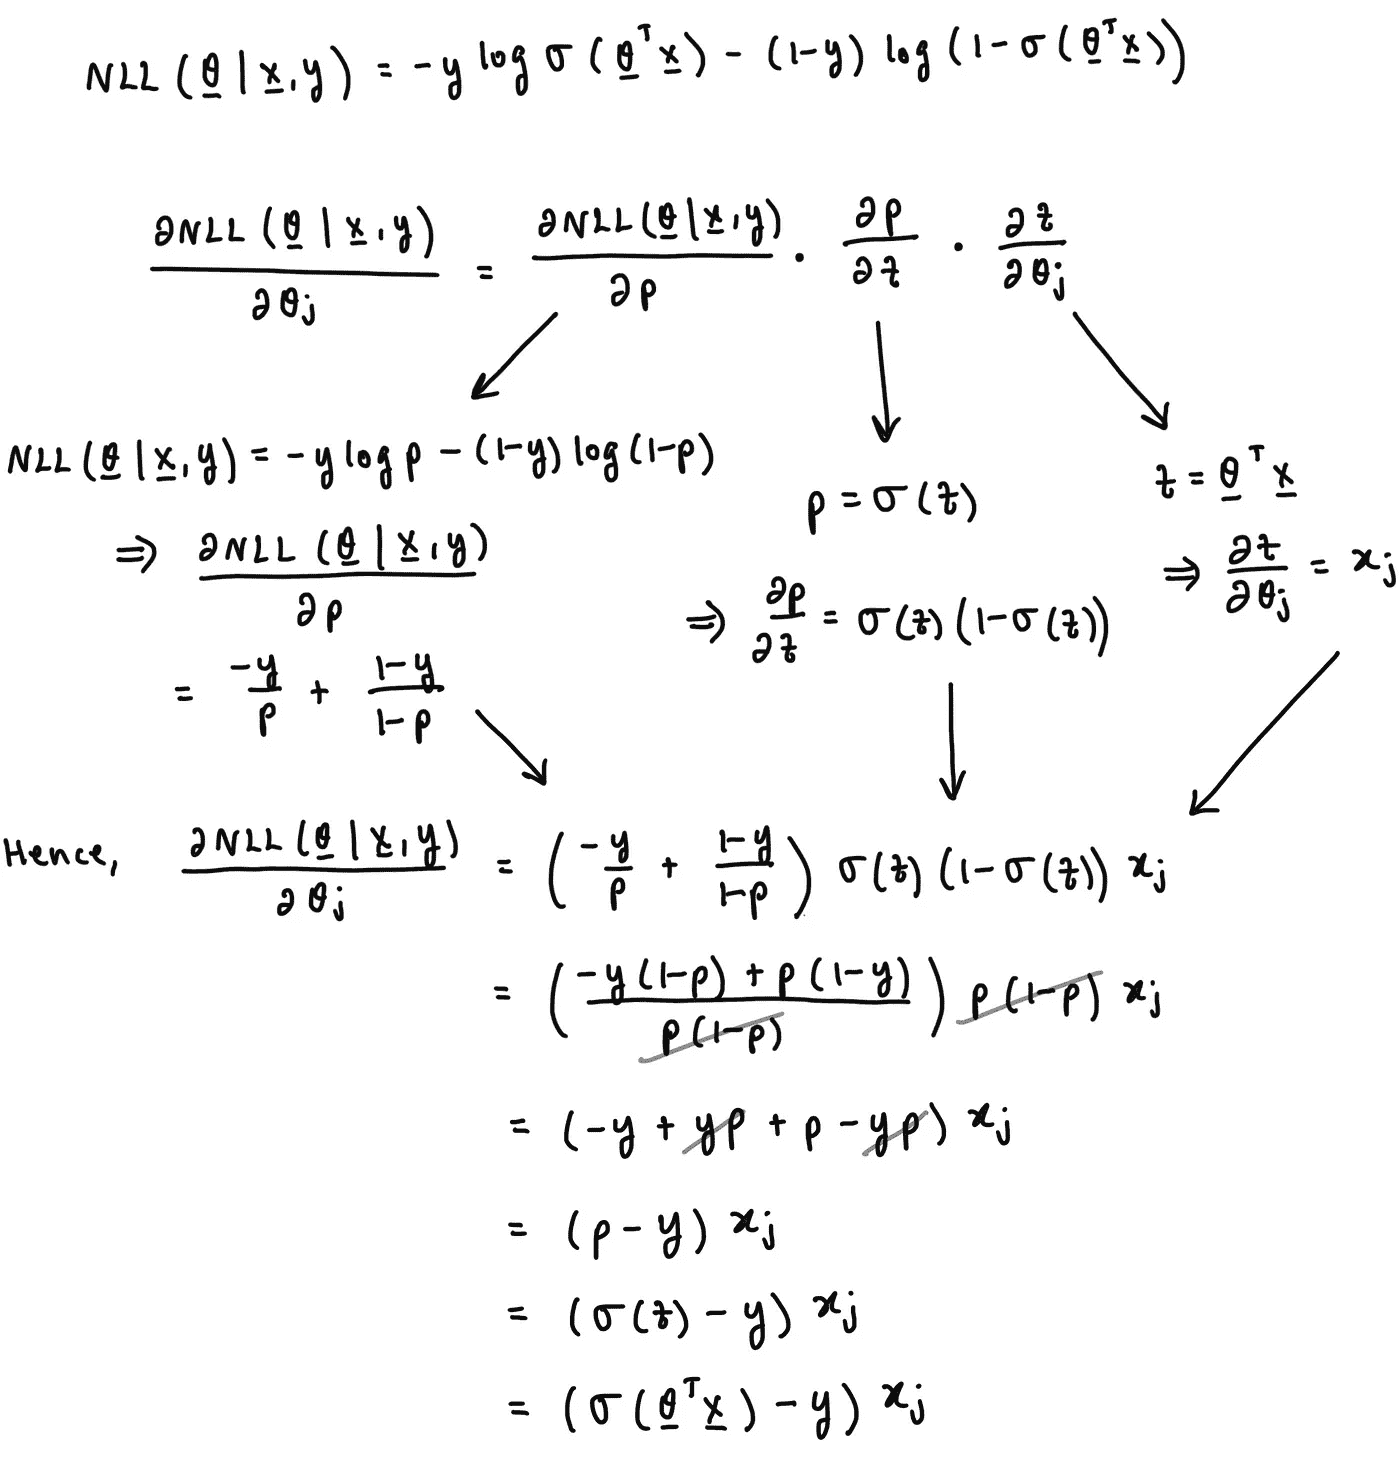 NLL (θ | x, y) = -y log σ (θᵀx) - (1-y) log (1 - σ (θᵀx))
∂NLL (θ | x, y) / ∂θⱼ = ∂NLL (θ | x, y) / ∂p · ∂p / ∂z · ∂z / ∂θⱼ
NLL (θ | x, y) = -y log p - (1-y) log (1-p)
⇒ ∂NLL (θ | x, y) / ∂p
= -y/p + (1-y)/(1-p)
p = σ (z)
⇒ ∂p/∂z = σ(z) (1-σ(z))
z = θᵀx
⇒ ∂z/∂θⱼ = xⱼ
Hence, ∂NLL (θ | x, y) / ∂θⱼ = (-y/p + (1-y)/(1-p)) σ(z) (1-σ(z)) xⱼ
= ((-y (1-p) + p (1-y)) / p (1-p)) p (1-p) xⱼ
= (-y + yp + p - yp) xⱼ
= (p - y) xⱼ
= (σ(z) - y) xⱼ
= (σ (θᵀx) - y) xⱼ